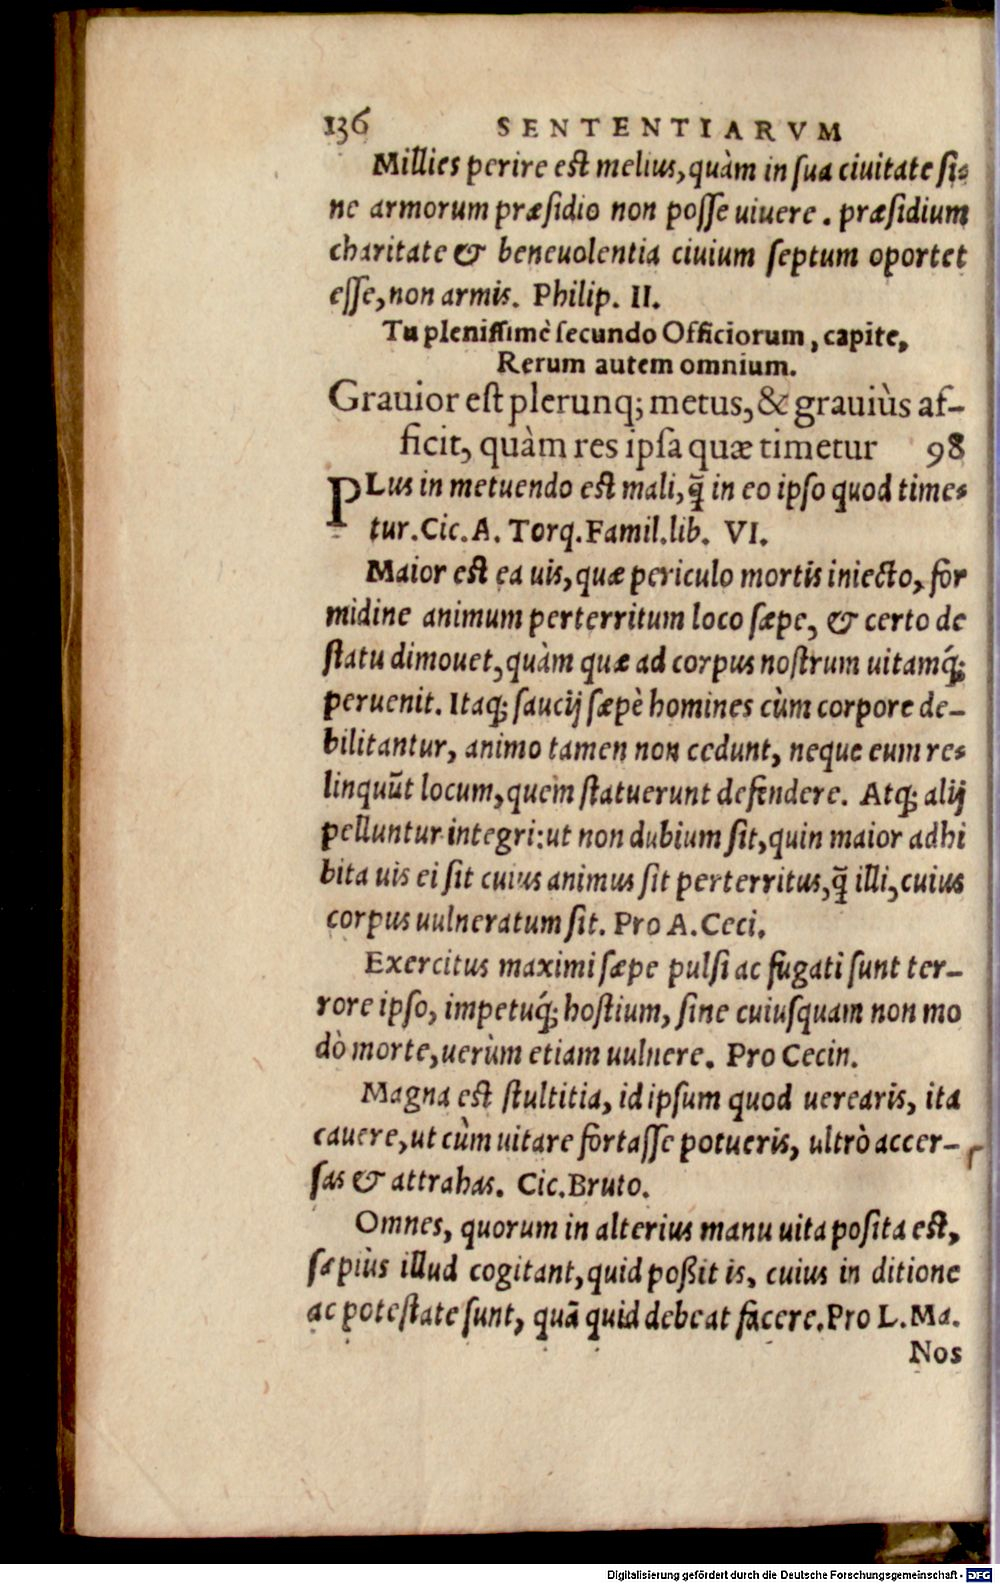 136 SENTENTIARVM
Millies perire est melius, quàm in sua ciuitate si-
ne armorum præsidio non posse uiuere. præsidium
charitate & beneuolentia ciuium septum oportet
esse, non armis. Philip. II.
Tu plenissimè secundo Officiorum, capite,
Rerum autem omnium.
Grauior est plerunq; metus, & grauiùs af-
ficit, quàm res ipsa quæ timetur 98
PLus in metuendo est mali, q̃ in eo ipso quod time-
tur. Cic. A. Torq. Famil. lib. VI.
Maior est ea uis, quæ periculo mortis iniecto, for
midine animum perterritum loco sæpe, & certo de
statu dimouet, quàm quæ ad corpus nostrum uitamq́;
peruenit. Itaq; saucij sæpè homines cùm corpore de-
bilitantur, animo tamen non cedunt, neque eum re-
linquũt locum, quem statuerunt defendere. Atq; alij
pelluntur integri: ut non dubium sit, quin maior adhi
bita uis ei sit cuius animus sit perterritus, q̃ illi, cuius
corpus uulneratum sit. Pro A. Ceci.
Exercitus maximi sæpe pulsi ac fugati sunt ter-
rore ipso, impetuq́; hostium, sine cuiusquam non mo
dò morte, uerùm etiam uulnere. Pro Cecin.
Magna est stultitia, id ipsum quod uerearis, ita
cauere, ut cùm uitare fortasse potueris, ultrò accer-
sas & attrahas. Cic. Bruto.
Omnes, quorum in alterius manu uita posita est,
sæpiùs illud cogitant, quid poßit is, cuius in ditione
ac potestate sunt, quã quid debeat facere. Pro L. Ma.
Nos
Digitalisierung gefördert durch die Deutsche Forschungsgemeinschaft - DFG